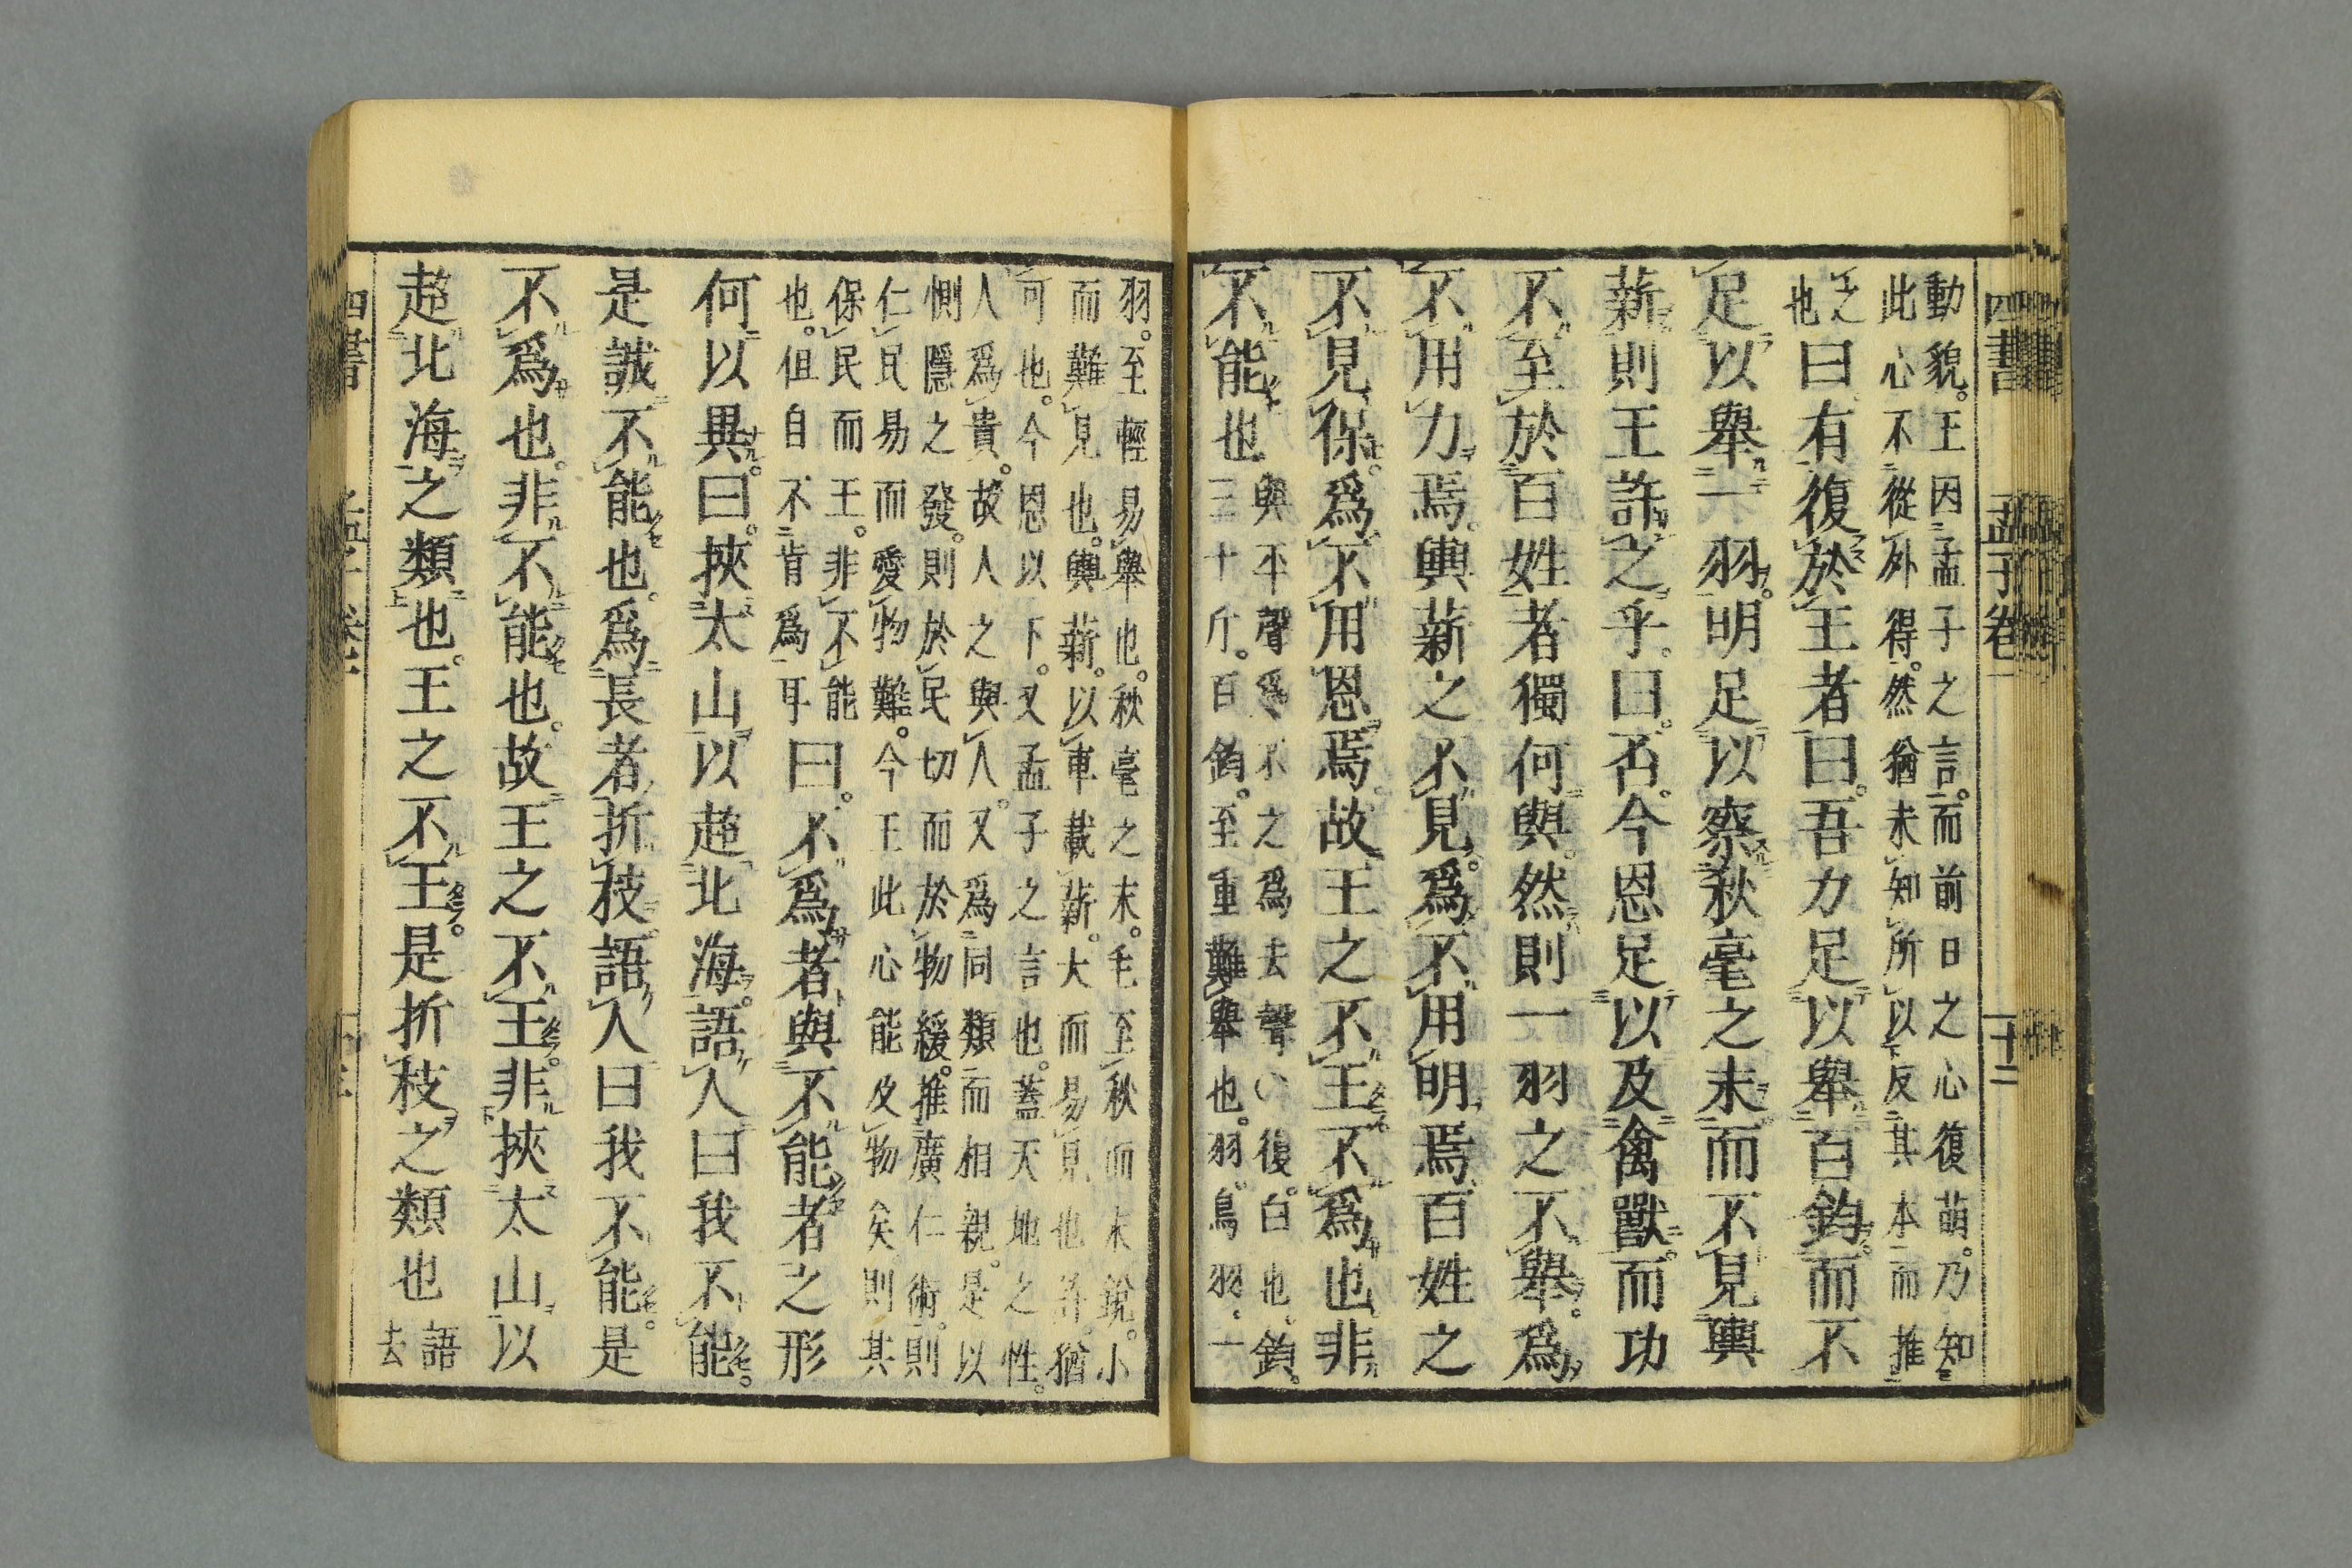 四書 孟子卷一 十二
動貌。王因孟子之言。而前日之心復萌。乃知
此心不從外得。然猶未知所以反其本而推
之
也
曰有復於王者曰。吾力足以舉百鈞。而不
足以舉一羽。明足以察秋毫之末。而不見輿
薪。則王許之乎。曰。否。今恩足以及禽獸。而功
不至於百姓者獨何與。然則一羽之不舉。爲
不用力焉。輿薪之不見。爲不用明焉。百姓之
不見保。爲不用恩焉。故王之不王。不爲也。非
不能也
與平聲爲不之爲去聲〇復。白也。鈞。
三十斤。百鈞。至重難舉也。羽。鳥羽。一
羽。至輕易舉也。秋毫之末。毛至秋而末銳。小
而難見也。輿薪。以車載薪。大而易見也。許。猶
可也。今恩以下。又孟子之言也。蓋天地之性。
人爲貴。故人之與人。又爲同類而相親。是以
惻隱之發。則於民切而於物緩。推廣仁術。則
仁民易而愛物難。今王此心能及物矣。則其
保民而王。非不能
也。但自不肯爲耳
曰。不爲者。與不能者之形
何以異。曰。挾太山以超北海。語人曰我不能。
是誠不能也。爲長者折枝。語人曰我不能。是
不爲也。非不能也。故王之不王。非挾太山以
超北海之類也。王之不王。是折枝之類也
語
去
四書